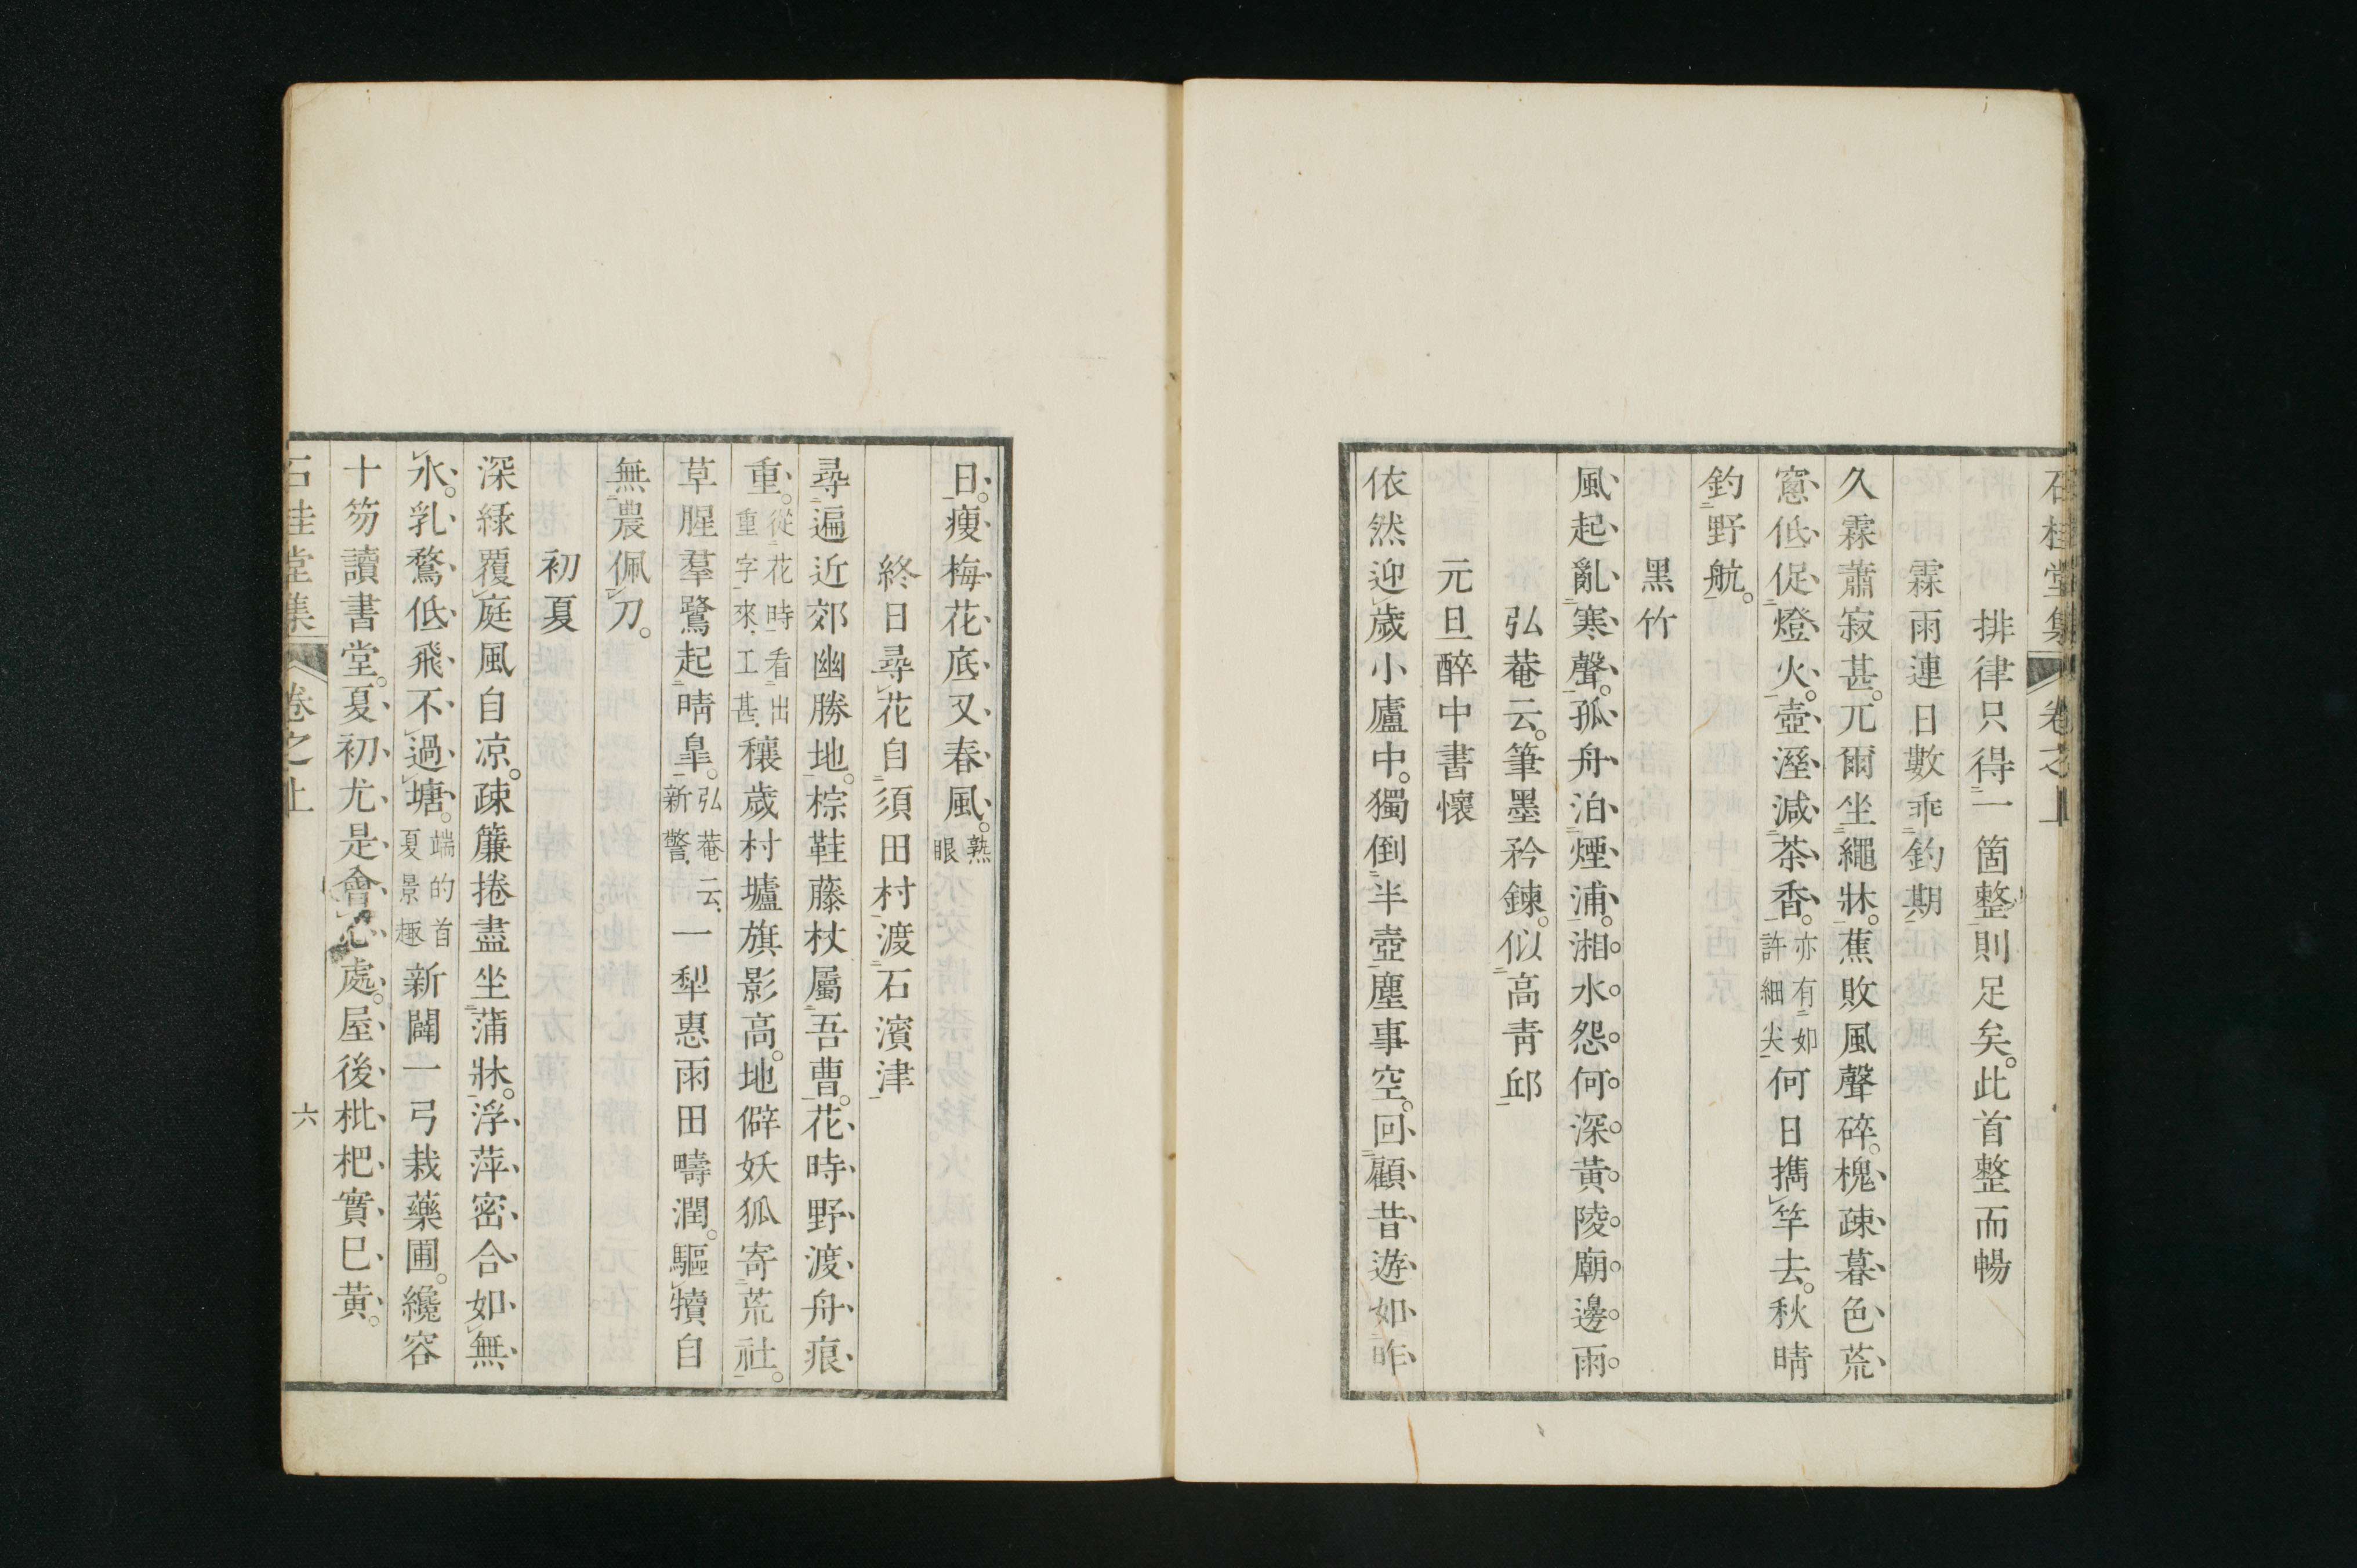 石桂堂集 卷之上
排律只得一箇整則足矣。此首整而暢
霖雨連日數乖釣期
久霖蕭寂甚。兀爾坐繩牀。蕉敗風聲碎。槐疎暮色荒
窻低促燈火。壺溼減茶香。亦有如許細尖何日擕竿去。秋晴
釣野航。
黑竹
風起亂寒聲。孤舟泊煙浦。湘水怨何深黃陵廟邊雨
弘菴云。筆墨矜鍊。似高靑邱
元旦醉中書懷
依然迎歲小廬中。獨倒半壺塵事空。回顧昔遊如昨
日。瘦梅花底又春風。熟眼
終日尋花自須田村渡石濱津
尋遍近郊幽勝地。棕鞋藤杖屬吾曹。花時野渡舟痕
重。從花時看出重字來工甚穰歲村壚旗影高。地僻妖狐寄荒社。
草腥羣鷺起晴皐。弘菴云新警一犁惠雨田疇潤。驅犢自
無農佩刀。
初夏
深綠覆庭風自凉。疎簾捲盡坐蒲牀。浮萍密合如無
水。乳鶩低飛不過塘。端的首夏景趣新闢一弓栽藥圃。纔容
十笏讀書堂。夏初尤是會心處。屋後枇杷實巳黃。
石桂堂集 卷之上 六